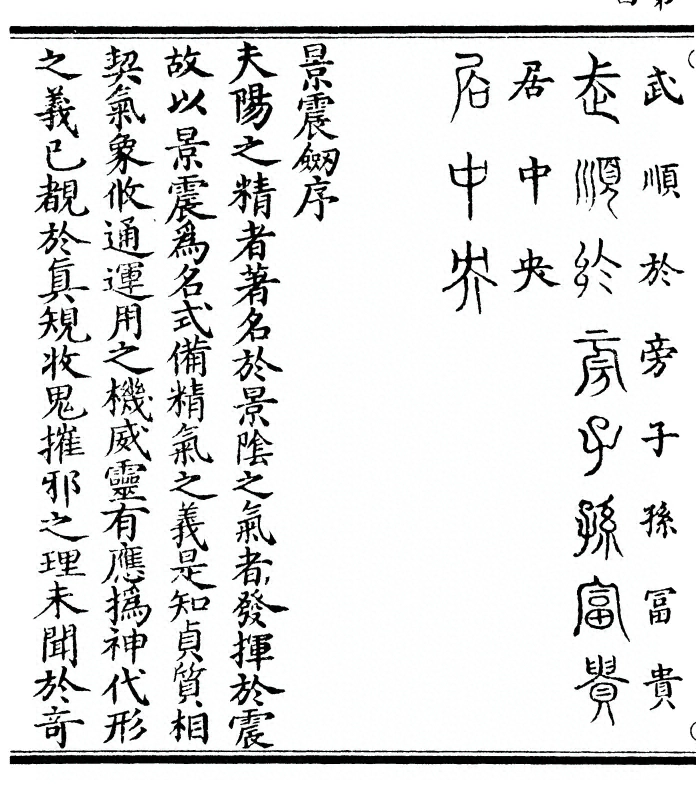 武順於旁子孫冨貴
武順於旁子孫富貴
居中央
居中央
景震劒序
夫陽之精者著名於景陰之氣者發揮於震
故以景震爲名式備精氣之義是知貞質相
契氣象攸通運用之機威靈有應撝神代形
之義已覩於眞規收鬼摧邪之理未聞於竒